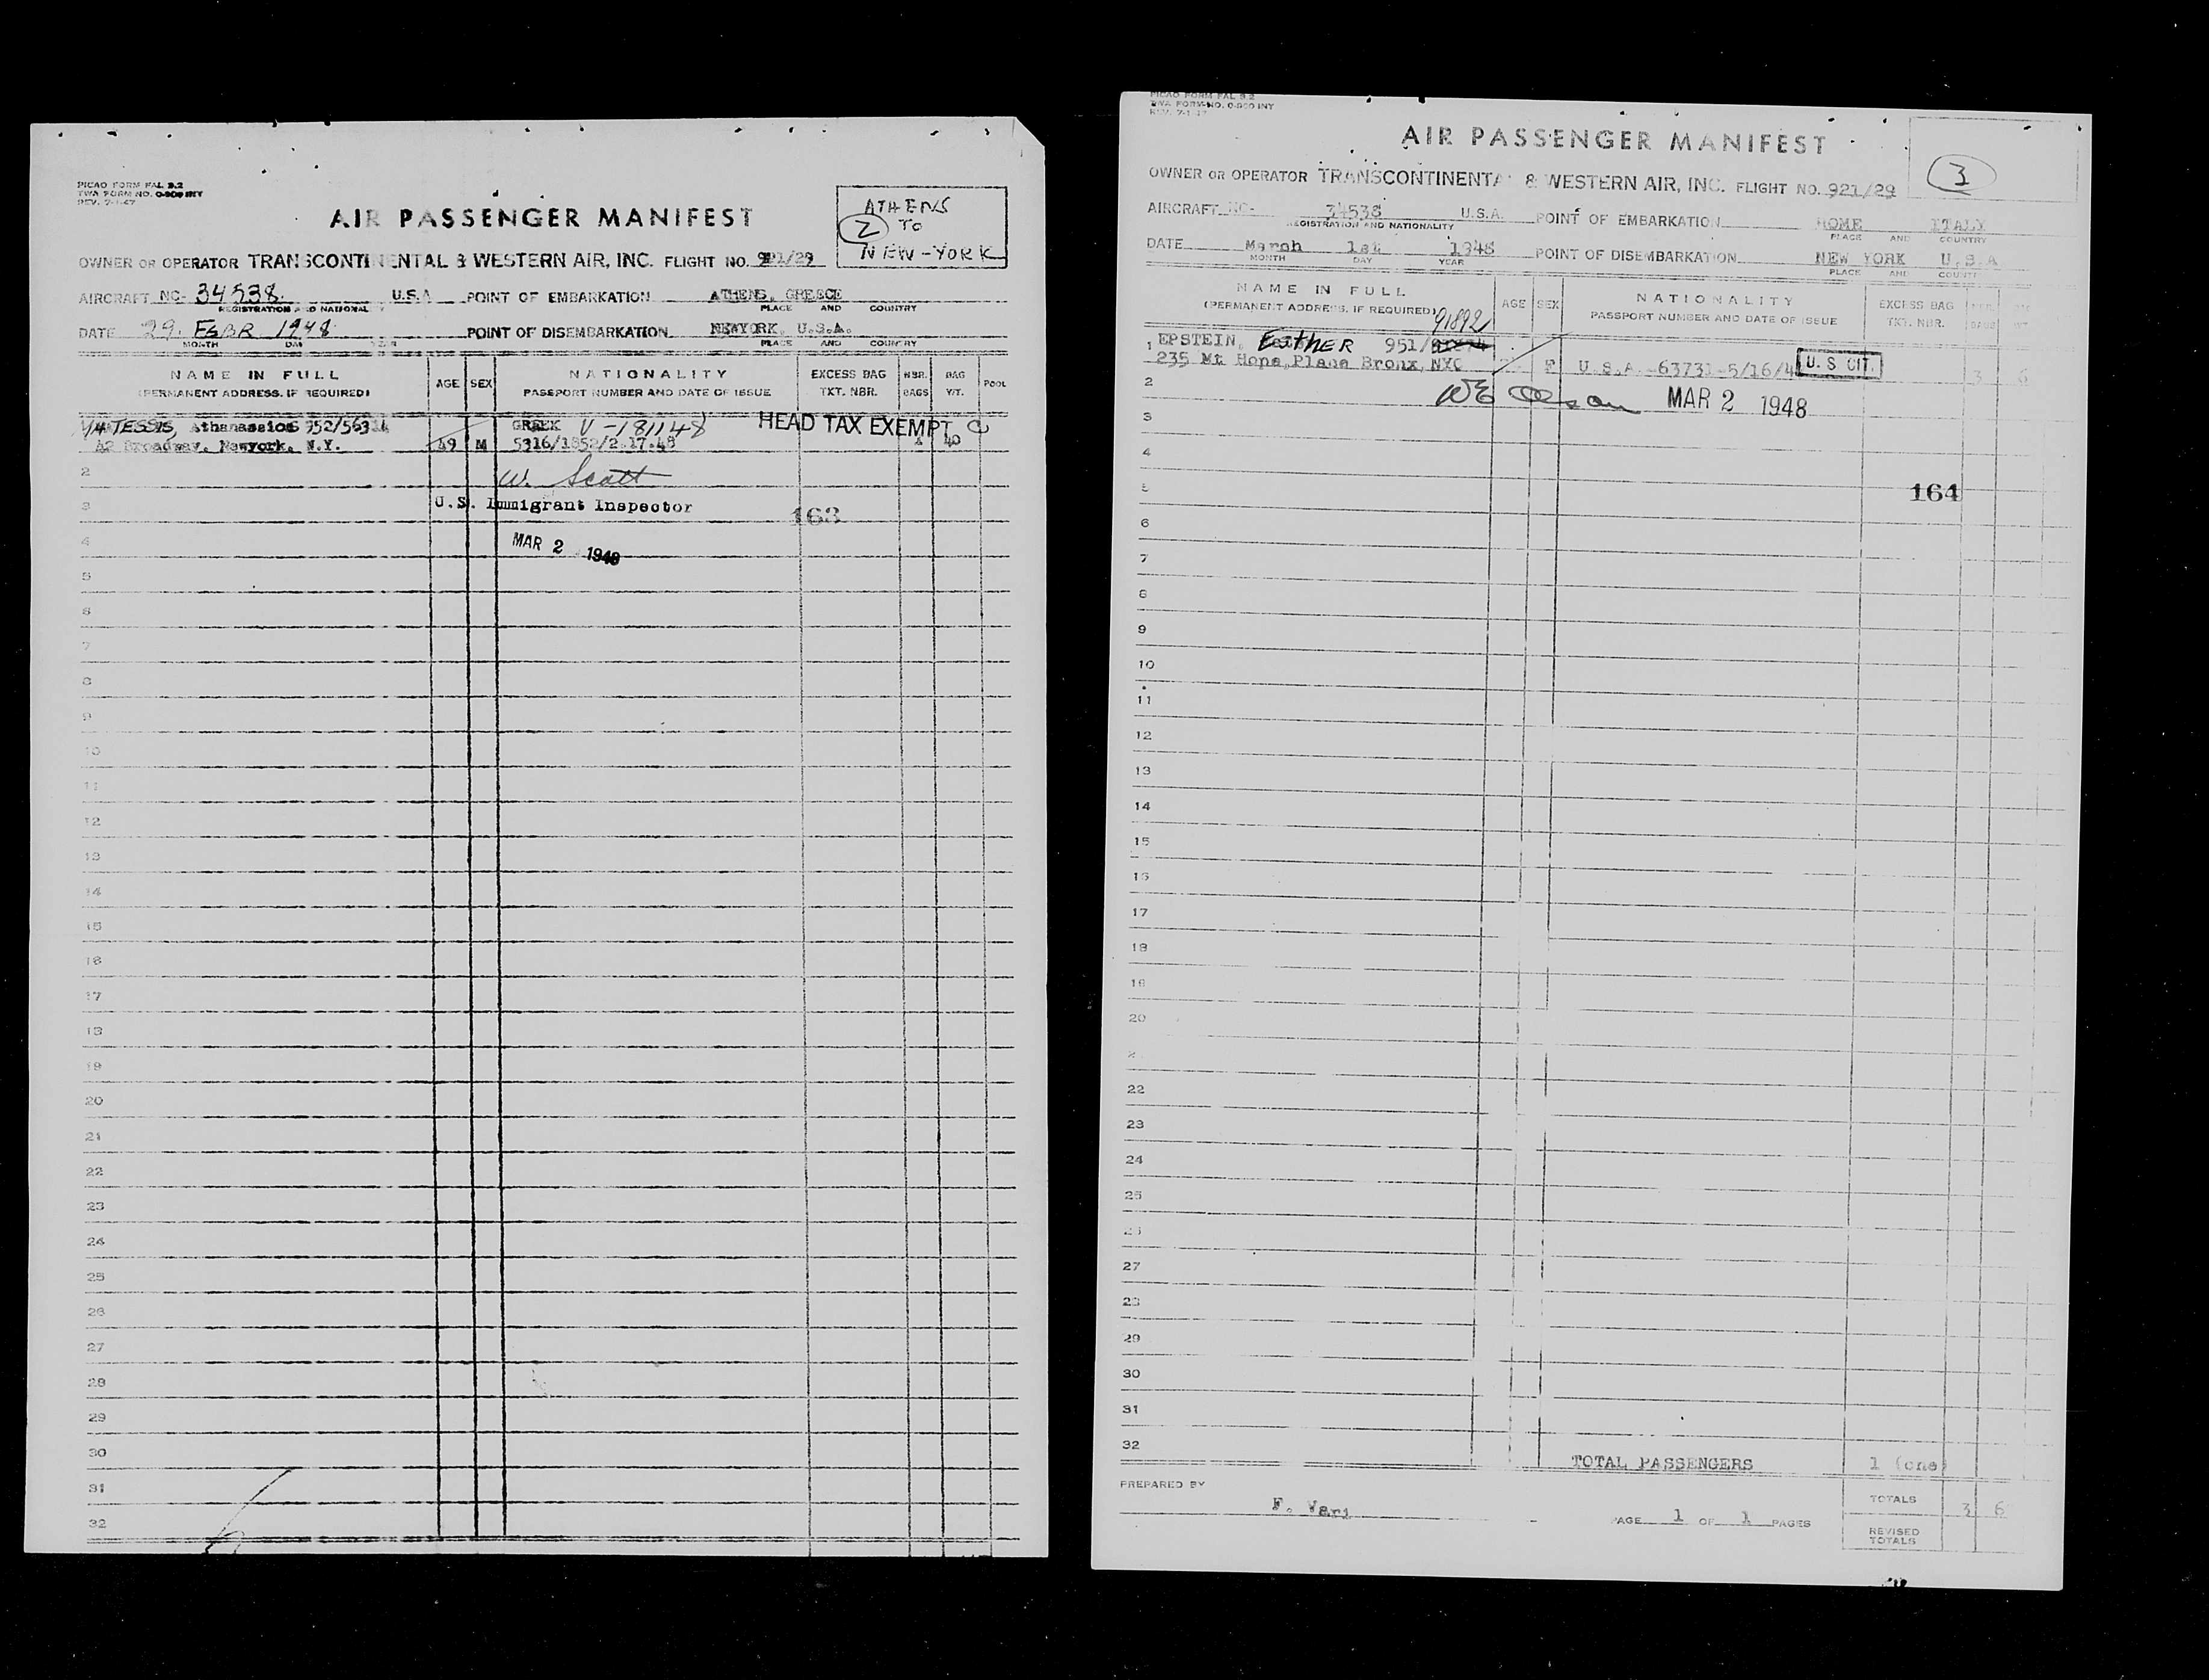 PICAO FORM FAL 3.2
TWA FORM NO. 0-900 INY
REV. 7-1-47
AIR PASSENGER MANIFEST
ATHENS
2 TO
NEW-YORK
OWNER OR OPERATOR TRANSCONTINENTAL & WESTERN AIR, INC. FLIGHT NO. 921/29
AIRCRAFT NC- 34538. U.S.A POINT OF EMBARKATION ATHENS, GREECE
REGISTRATION AND NATIONALITY PLACE AND COUNTRY
DATE 29. FEBR 1948 POINT OF DISEMBARKATION NEWYORK, U.S.A.
MONTH DAY YEAR PLACE AND COUNTRY
NAME IN FULL
(PERMANENT ADDRESS, IF REQUIRED)
AGE SEX
NATIONALITY
PASSPORT NUMBER AND DATE OF ISSUE
EXCESS BAG
TXT. NBR.
NBR.
BAGS
BAG
WT.
POOL
TESSIS, Athanassios
GREEK V-181148 HEAD TAX EXEMPT C
42 Broadway, Newyork, N.Y. 49 M 5316/1852/2.17.48 1 40
2
W. Scott
3 U.S. Immigrant Inspector 163
4 MAR 2 1948
5
6
7
8
9
10
11
12
13
14
15
16
17
18
19
20
21
22
23
24
25
26
27
28
29
30
31
32
PICAO FORM FAL 3.2
TWA FORM NO. 0-900 INY
REV. 7-1-47
AIR PASSENGER MANIFEST
3
OWNER OR OPERATOR TRANSCONTINENTAL & WESTERN AIR, INC. FLIGHT NO. 921/29
AIRCRAFT NC- 34538 U.S.A. POINT OF EMBARKATION ROME ITALY
REGISTRATION AND NATIONALITY PLACE AND COUNTRY
DATE March 1st 1948 POINT OF DISEMBARKATION NEW YORK U.S.A
MONTH DAY YEAR PLACE AND COUNTRY
NAME IN FULL
(PERMANENT ADDRESS, IF REQUIRED)
91892
AGE SEX
NATIONALITY
PASSPORT NUMBER AND DATE OF ISSUE
EXCESS BAG
TXT. NBR.
1 EPSTEIN, Esther 951/
235 Mt Hope, Place Bronx, NYC F U.S.A. -63731-5/16/4 U.S CIT. 3 6
2
MAR 2 1948
3
4
5 164
6
7
8
9
10
11
12
13
14
15
16
17
18
19
20
22
23
24
25
27
28
29
30
31
32
TOTAL PASSENGERS 1 (one)
PREPARED BY
F. Vari
PAGE 1 OF 1 PAGES
TOTALS 3 6
REVISED
TOTALS